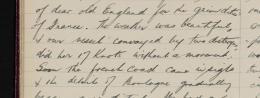 of dear old England for the
of France. The weather was beautiful,
& our vessel convoyed by two
did her of Knots without a moment.
Soon the french coast came in sight
& the details of Boulogne gradually